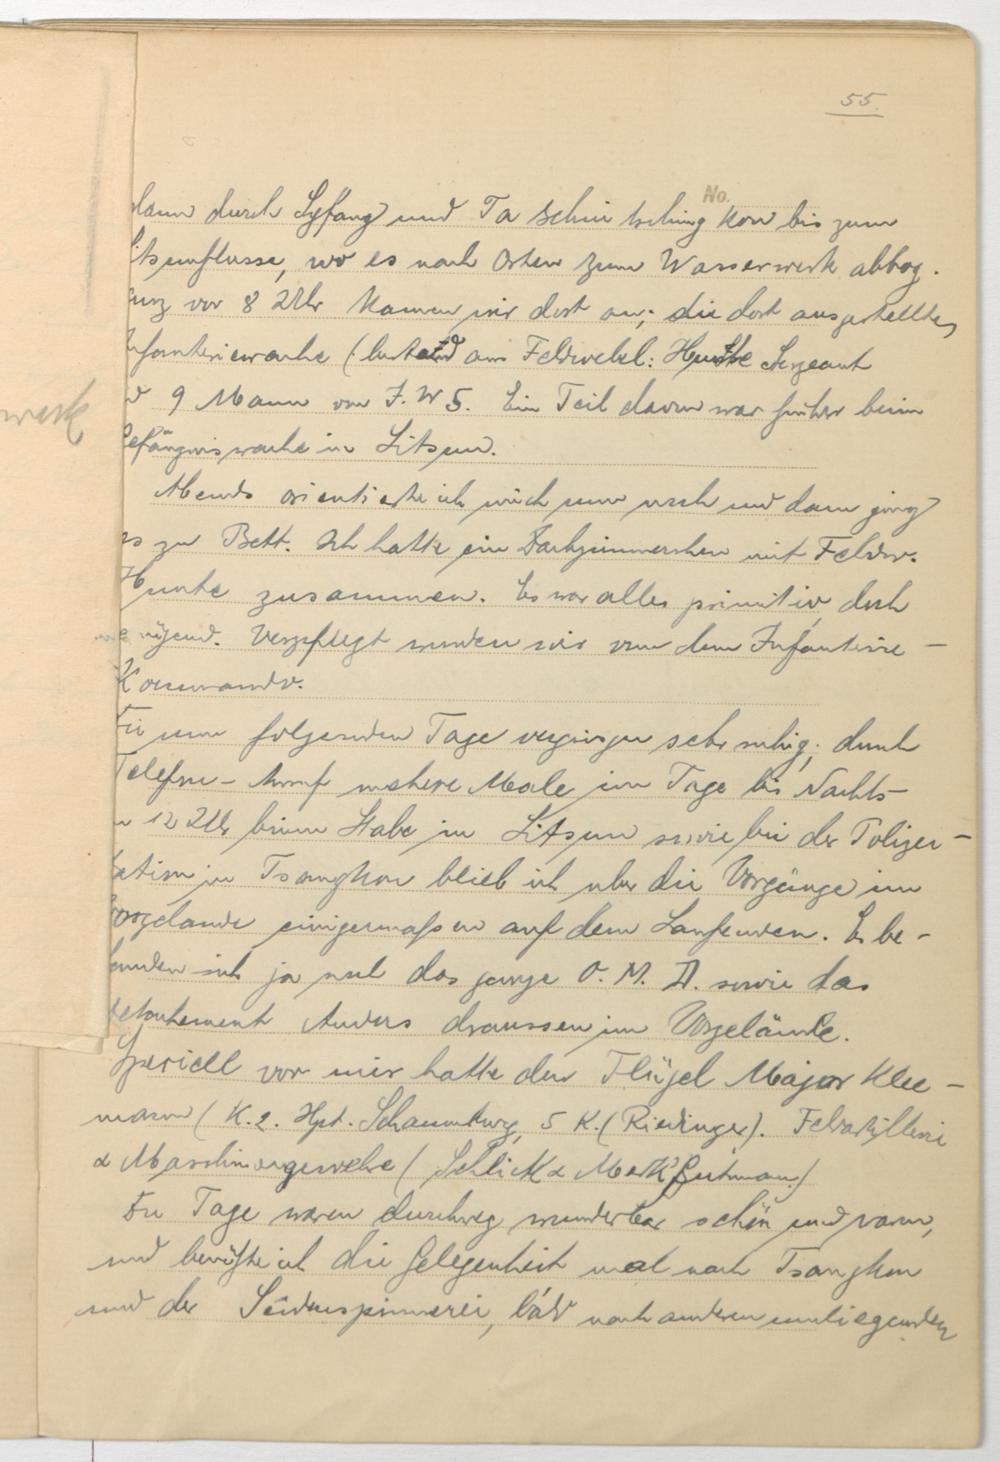 55.
No.
dann durch Syfang und Ta schui tsching kou bis zum
itsunflusse, wo es nach Osten zum Wasserwerk abbog.
urz vor 8 Uhr kamen wir dort an; die dort ausgestellte
nfanteriewache (bestehend aus Feldwebel: Hunke Sergeant
d 9 Mann von J. W 5. Ein Teil davon war früher beim
efängniswache in Litsun.
Abends orientierte ich mich nun noch und dann ging
es zu Bett. Ich hatte ein Dachzimmerchen mit Feldw.
Hunke zusammen. Es war alles primitiv, doch
nügend. Verpflegt wurden wir von dem Infanterie-
Kommando.
Die nun folgenden Tage vergingen sehr ruhig; durch
Telefon-Anruf mehere Male im Tage bis Nachts-
12 Uhr beim Stabe in Litsun sowie bei der Polizei-
tation in Tsangkou blieb ich über die Vorgänge im
Vorgelände einigermaßen auf dem Laufenden. Es be-
fanden sich ja noch das ganze O. M. D. sowie das
etachement Anders draussen im Vorgelände.
Speziell vor mir hatte den Flügel Major Klee-
mann (K. 2. Hpt. Schaumburg, 5 K. (Riedinger). Feldartillerie
& Maschinengewehre (Schlick & Merk
Die Tage waren durchweg wunderbar schön und warm,
und benützte ich die Gelegenheit mal nach Tsangkou
und der Seidenspinnerei, bald nach anderen umliegenden
werk